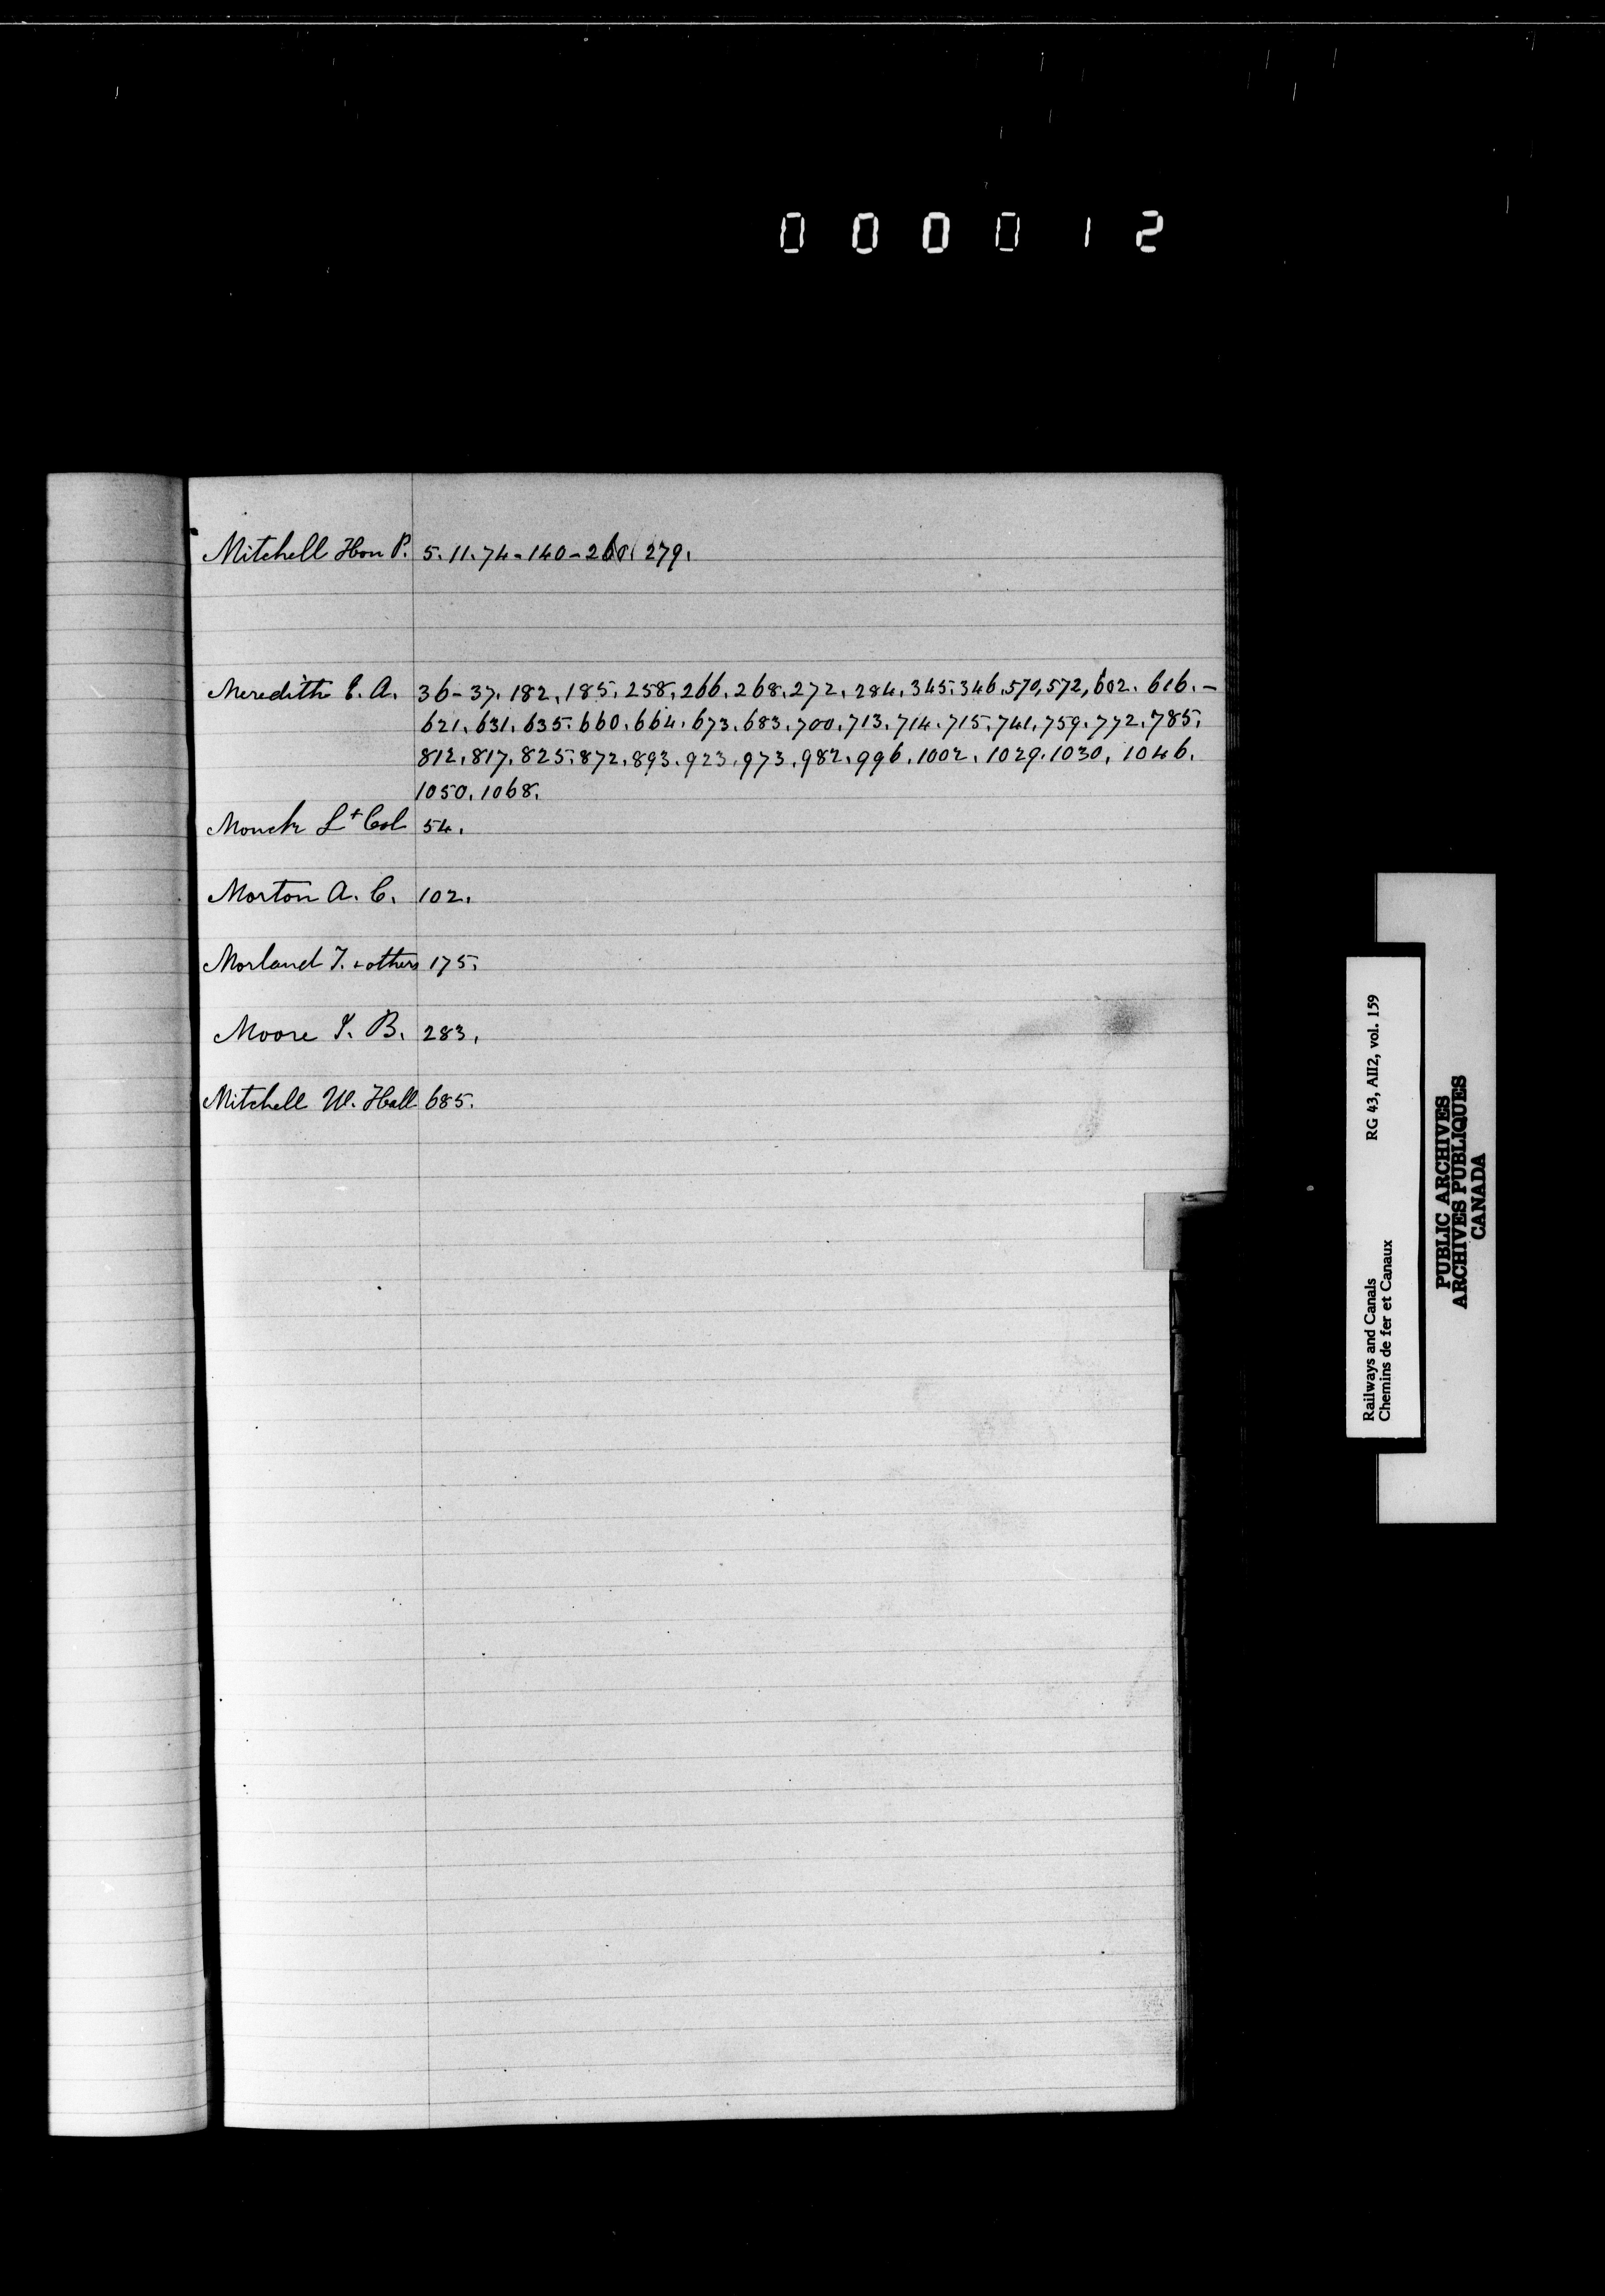 000012
Mitchell Hon P. 5. 11. 74 - 140 - 260. 279.
Meredith E. A. 36 - 37. 182. 185. 258. 266. 268. 272. 284. 345. 346. 570, 572, 602. 616. -
621. 631. 635. 660. 664. 673. 683. 700. 713. 714. 715. 741. 759. 772. 785.
812. 817. 825. 872. 893. 923. 973. 982. 996. 1002. 1029. 1030. 1046.
1050. 1068.
Monck Lt Col 54.
Morton A. C. 102.
Morland T. & others 175.
Moore T. B. 283.
Mitchell W. Hall 685.
Railways and Canals RG 43, AII2, vol. 159
Chemins de fer et Canaux
PUBLIC ARCHIVES
ARCHIVES PUBLIQUES
CANADA